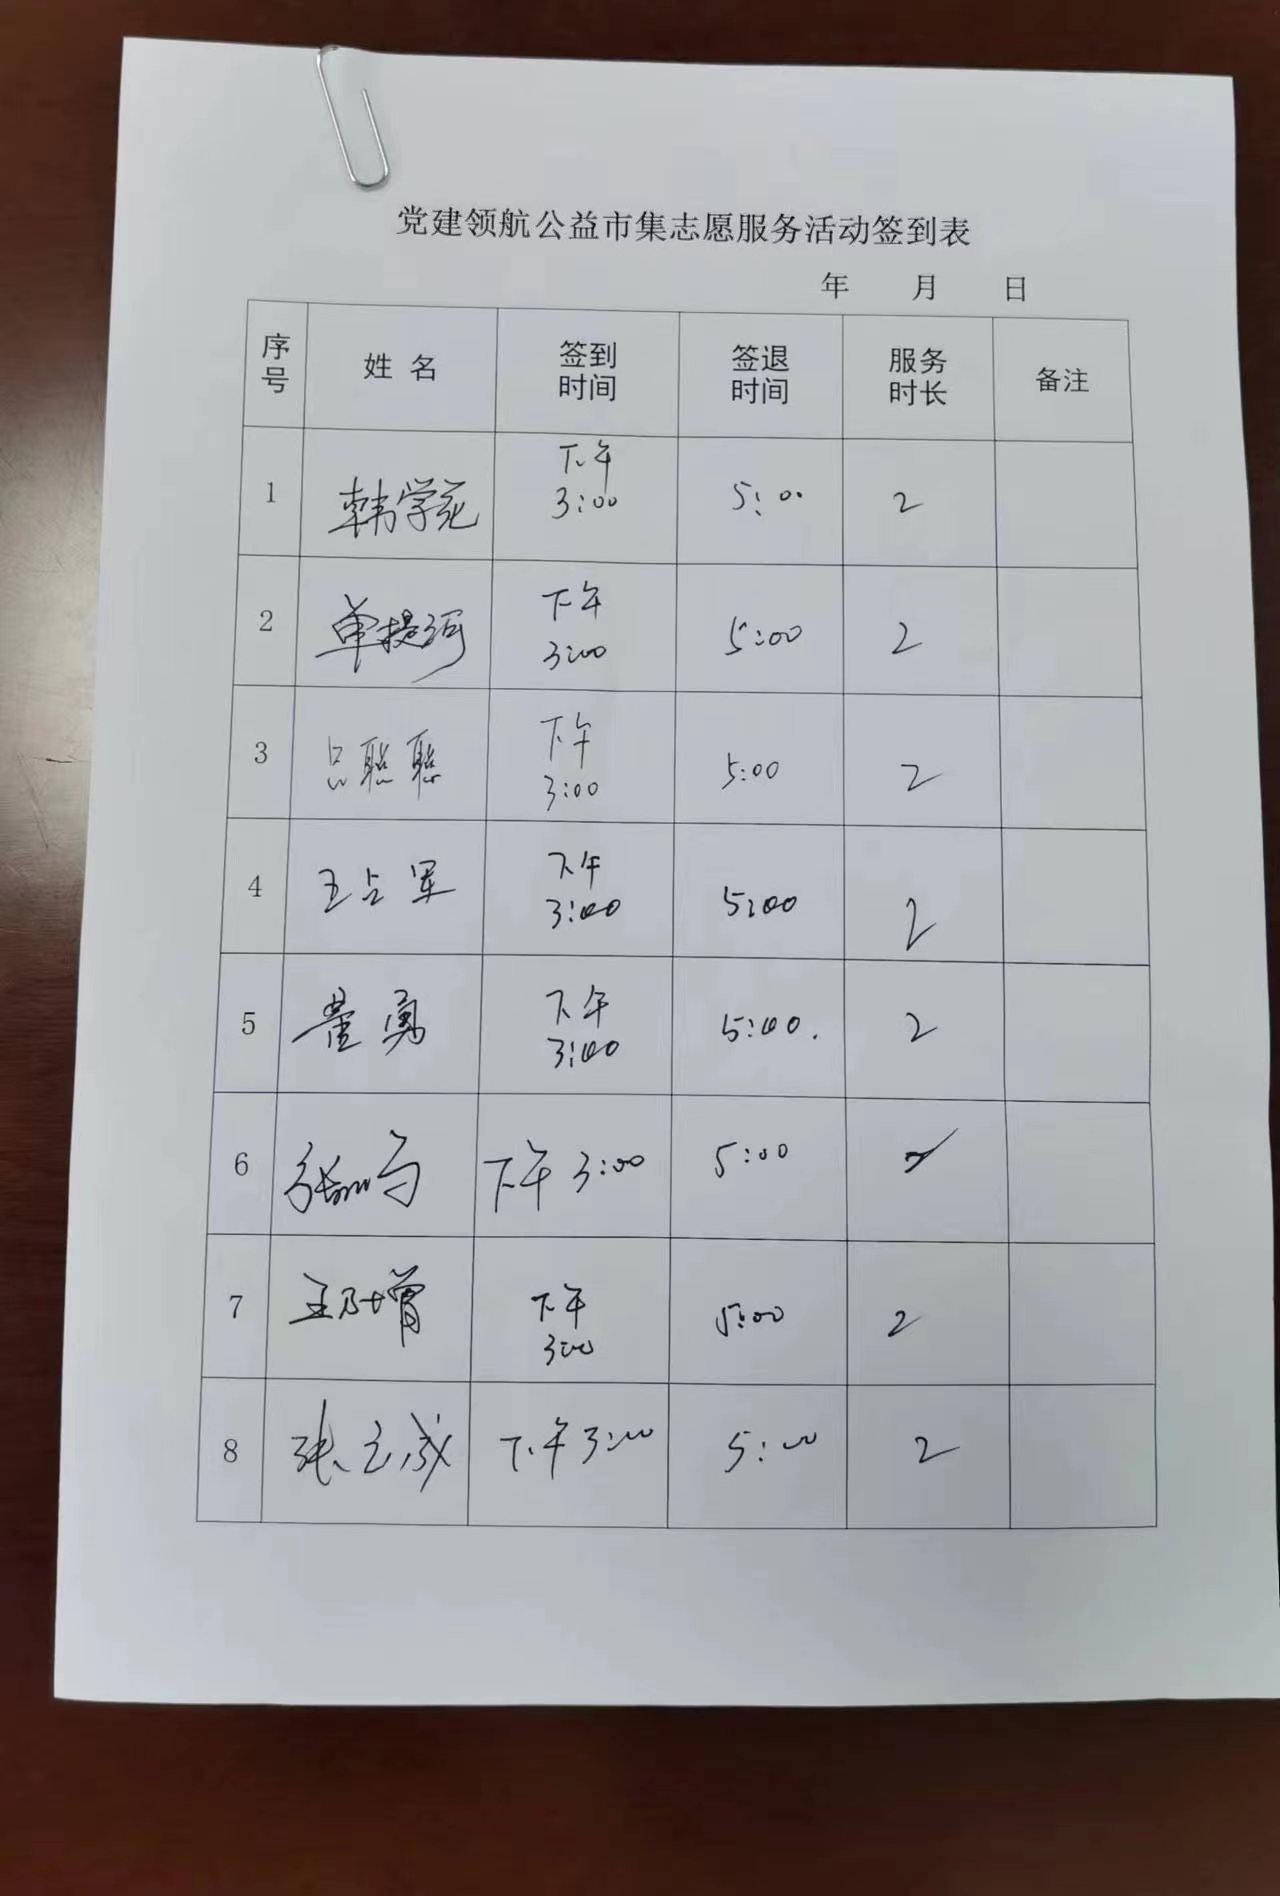 党建领航公益市集志愿服务活动签到表
年 月 日
序号 姓名 签到时间 签退时间 服务时长 备注
1 韩学苑 下午 3:00 5:00 2
2 单提河 下午 3:00 5:00 2
3 吕聪聪 下午 3:00 5:00 2
4 王占军 下午 3:00 5:00 2
5 董勇 下午 3:00 5:00. 2
6 下午 3:00 5:00 2
7 下午 3:00 5:00 2
8 张立成 下午 3:00 5:00 2